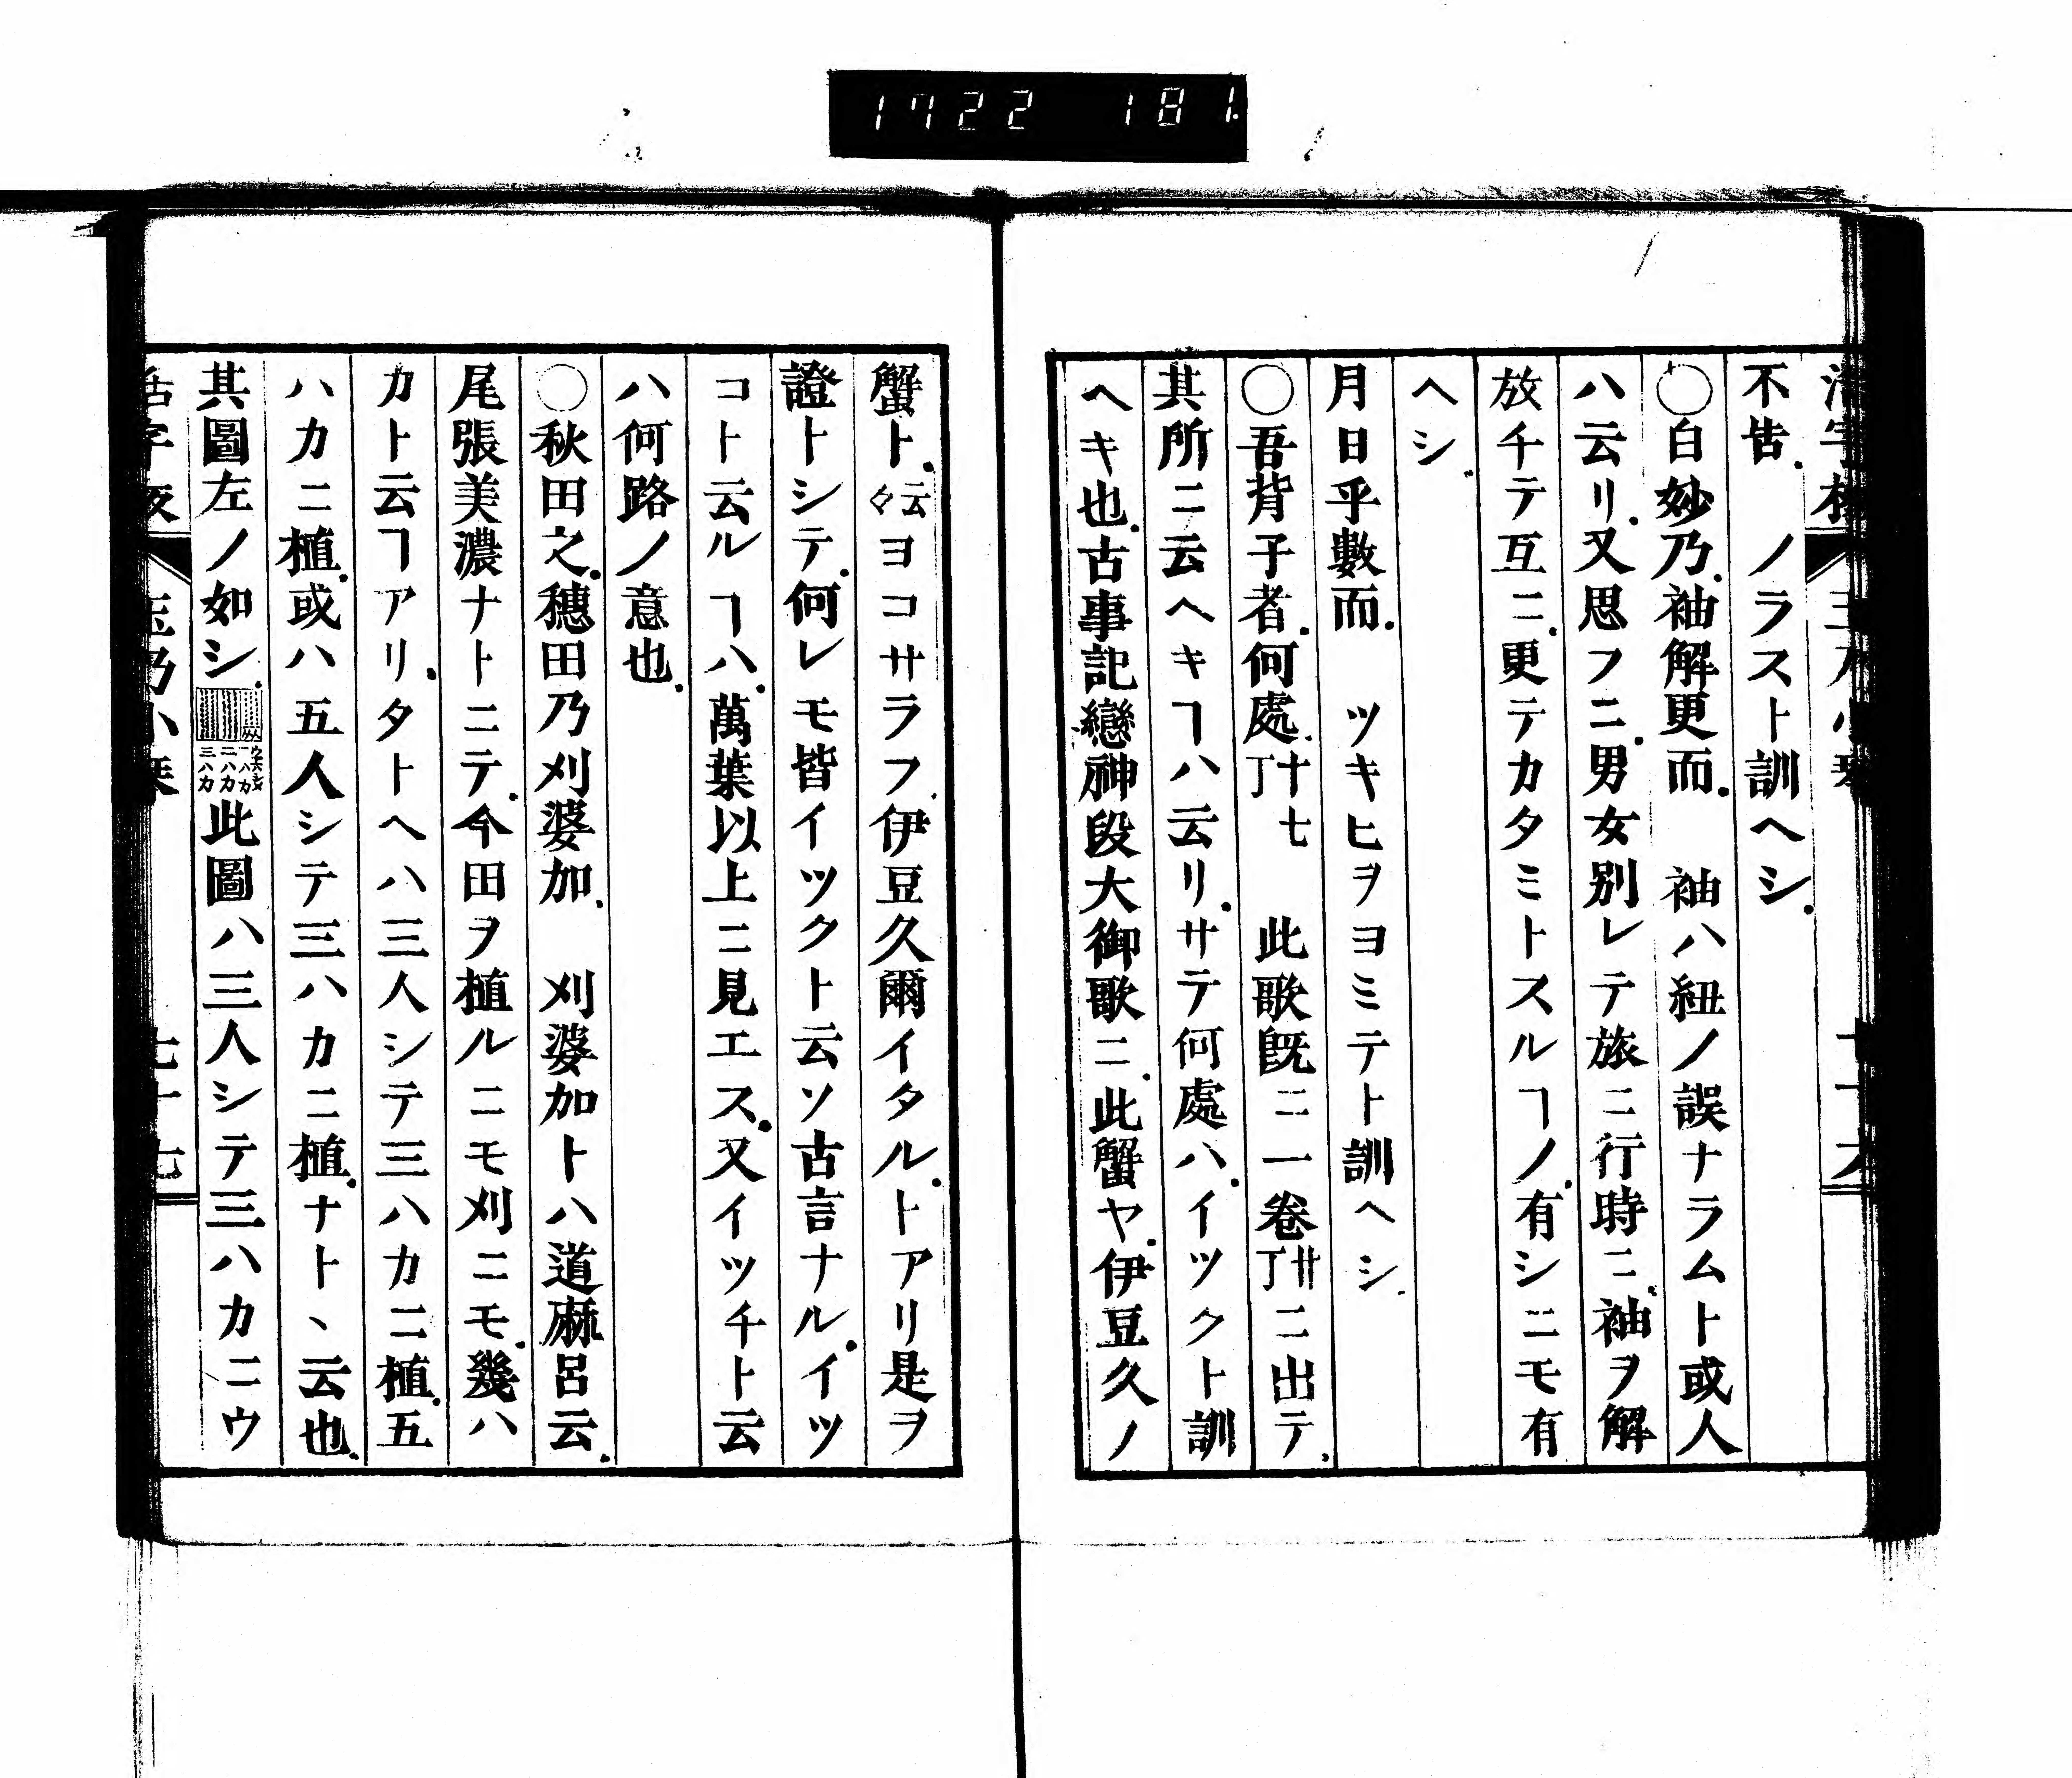 1722 181.
不告. ノラスト訓ヘシ.
○白妙乃.袖解更而. 袖ハ紐ノ誤ナラムト或人
ハ云リ.又思フニ.男女別レテ旅ニ行時ニ.袖ヲ解
放チテ互ニ.更テカタミトスルヿノ.有シニモ有
ヘシ.
月日乎數而. ツキヒヲヨミテト訓ヘシ.
○吾背子者.何處.十七丁 此歌既ニ一卷廿丁ニ出テ.
其所ニ云ヘキヿハ云リ.サテ何處ハ.イツクト訓
ヘキ也.古事記戀神段大御歌ニ.此蟹ヤ.伊豆久ノ
蟹ト.云々ヨコサラフ.伊豆久爾イタル.トアリ是ヲ
證トシテ.何レモ皆イツクト云ソ古言ナル.イツ
コト云ルヿハ.萬葉以上ニ見エス.又イツチト云
ハ何路ノ意也.
○秋田之.穗田乃刈婆加. 刈婆加トハ道麻呂云.
尾張美濃ナトニテ.今田ヲ植ルニモ刈ニモ.幾ハ
カト云ヿアリ.タトヘハ三人シテ三ハカニ植.五
ハカニ植.或ハ五人シテ三ハカニ植.ナト、云也.
其圖左ノ如シ.
一ハカ
二ハカ
三ハカ
此圖ハ三人シテ三ハカニウ
活字版 玉乃小琴 七十七